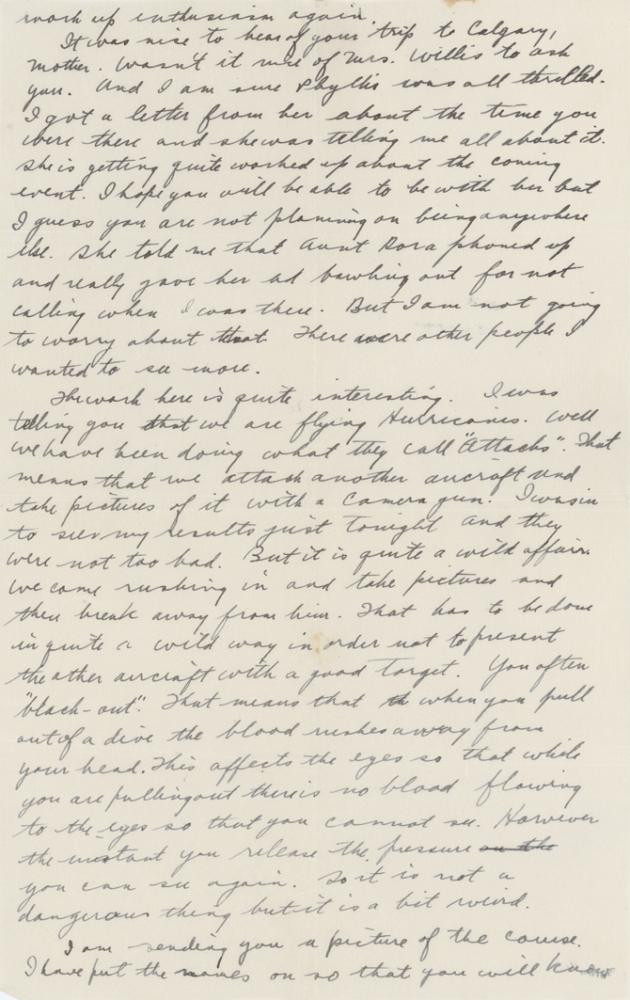 work up enthusiasm again.
It was nice to hear of your trip to Calgary,
Mother. Wasn't it nice of Mrs. Willis to ask
you. And I am sure Phyllis was all thrilled.
I got a letter from her about the time you
were there and she was telling me all about it.
She is getting quite worked up about the coming
event. I hope you will be able to be with her but
I guess you are not planning on being anywhere
else. She told me that Aunt Dora phoned up
and really gave her ad bawling out for not
calling when I was there. But I am not going
to worry about that. There were other people I
wanted to see more.
The work here is quite interesting. I was
telling you that we are flying Hurricanes. Well
we have been doing what they call "Attacks". That
means that we attack another aircraft and
take pictures of it with a camera gun. I was in
to see my results just tonight and they
were not too bad. But it is quite a wild affair.
We come rushing in and take pictures and
then break away from him. That has to be done
in quite a wild way in order not to present
the other aircraft with a good target. You often
"black-out". That means that when you pull
out of a dive the blood rushes away from
your head. This affects the eyes so that while
you are pulling out there is no blood flowing
to the eyes so that you cannot see. However
the instant you release the pressure on the
you can see again. So it is not a
dangerous thing but it is a bit weird.
I am sending you a picture of the course.
I have put the names on so that you will know